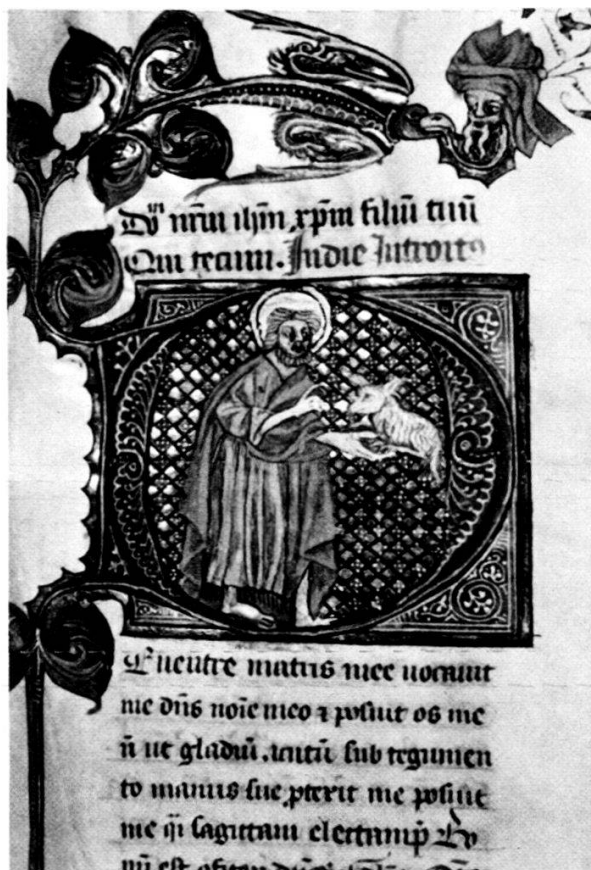 Dm̄ nr̄m ihm̄ xp̄m filiū tuū
Qui tecum. In die Introit9
E uentre matris mee uocauit
me dn̄s noīe meo ⁊ posuit os me
ū ut gladiū. acutū sub tegumen
to manus sue ꝓtexit me posuit
me q̄i sagittam electam p̄ Bo
nū est